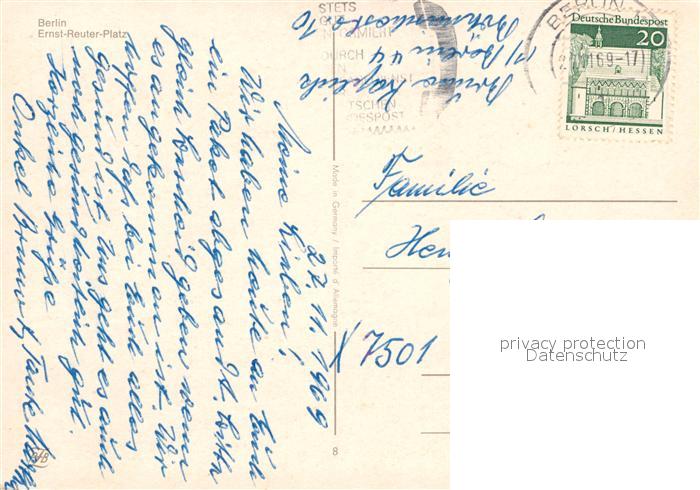 Berlin
Ernst-Reuter-Platz
STETS
DURCH
DEUTSCHEN
BUNDESPOST
BERLIN
69-17
Deutsche Bundespost
20
LORSCH/HESSEN
Bruno
1/Berlin 44
27.11.1969
Meine Lieben!
Wir haben heute an Euch
ein Paket abgesandt. Bitte
gleich Bescheid geben wenn
es angekommen ist. Wir
hoffen daß bei Euch alles
gesund ist. Uns geht es auch
noch gesundheitlich gut.
Herzliche Grüße
Onkel Bruno u. Tante
Made in Germany / Importé d'Allemagne
8
Familie
X 7501
privacy protection
Datenschutz